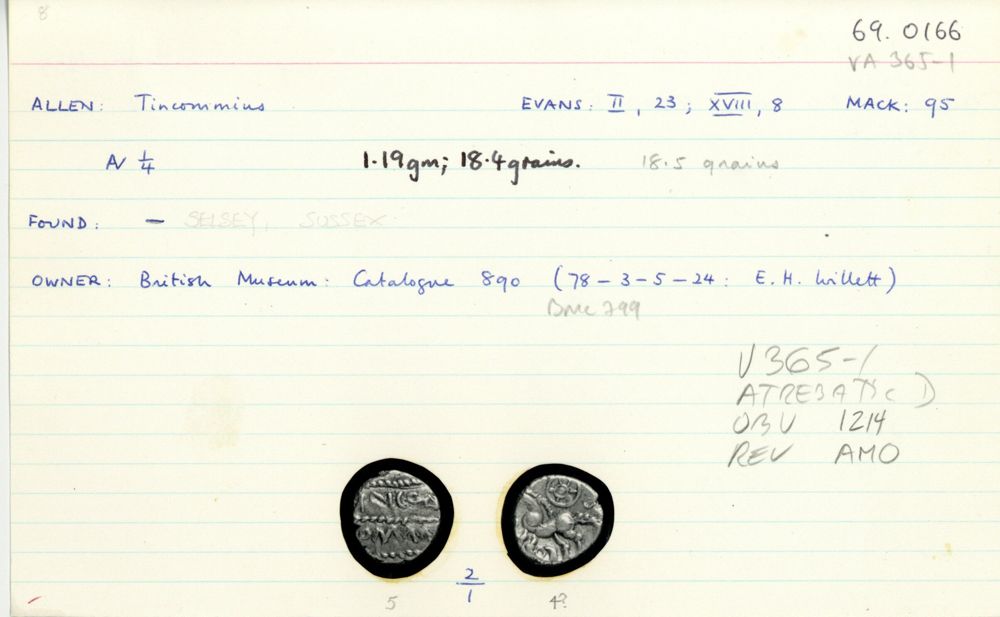 8
69. 0166
VA 365-1
ALLEN: Tincommius EVANS: II, 23; XVIII, 8 MACK: 95
AV 1/4 1.19gm; 18.4grains. 18.5 grains
FOUND: — SELSEY, SUSSEX
OWNER: British Museum: Catalogue 890 (78-3-5-24: E. H. Willett)
BMC 799
V365-1
ATREBATIC D
OBV 1214
REV AMO
2/1
5 4?